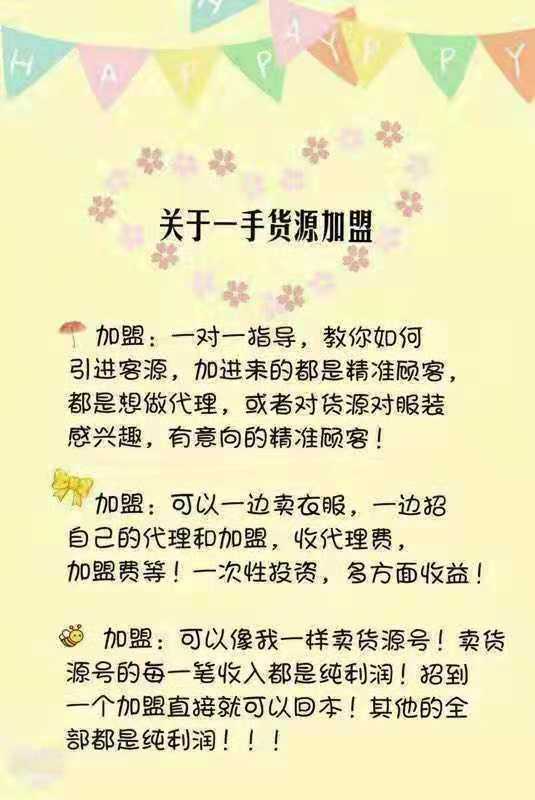 HAPPY HAPPY
关于一手货源加盟
加盟：一对一指导，教你如何
引进客源，加进来的都是精准顾客，
都是想做代理，或者对货源对服装
感兴趣，有意向的精准顾客！
加盟：可以一边卖衣服，一边招
自己的代理和加盟，收代理费，
加盟费等！一次性投资，多方面收益！
加盟：可以像我一样卖货源号！卖货
源号的每一笔收入都是纯利润！招到
一个加盟直接就可以回本！其他的全
部都是纯利润！！！